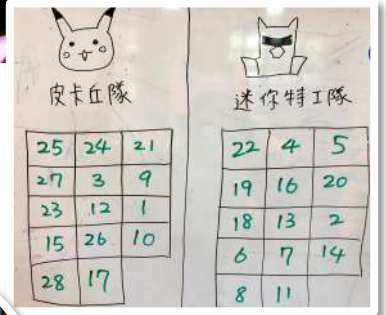 皮卡丘隊
25 24 21
27 3 9
23 12 1
15 26 10
28 17
迷你特工隊
22 4 5
19 16 20
18 13 2
6 7 14
8 11